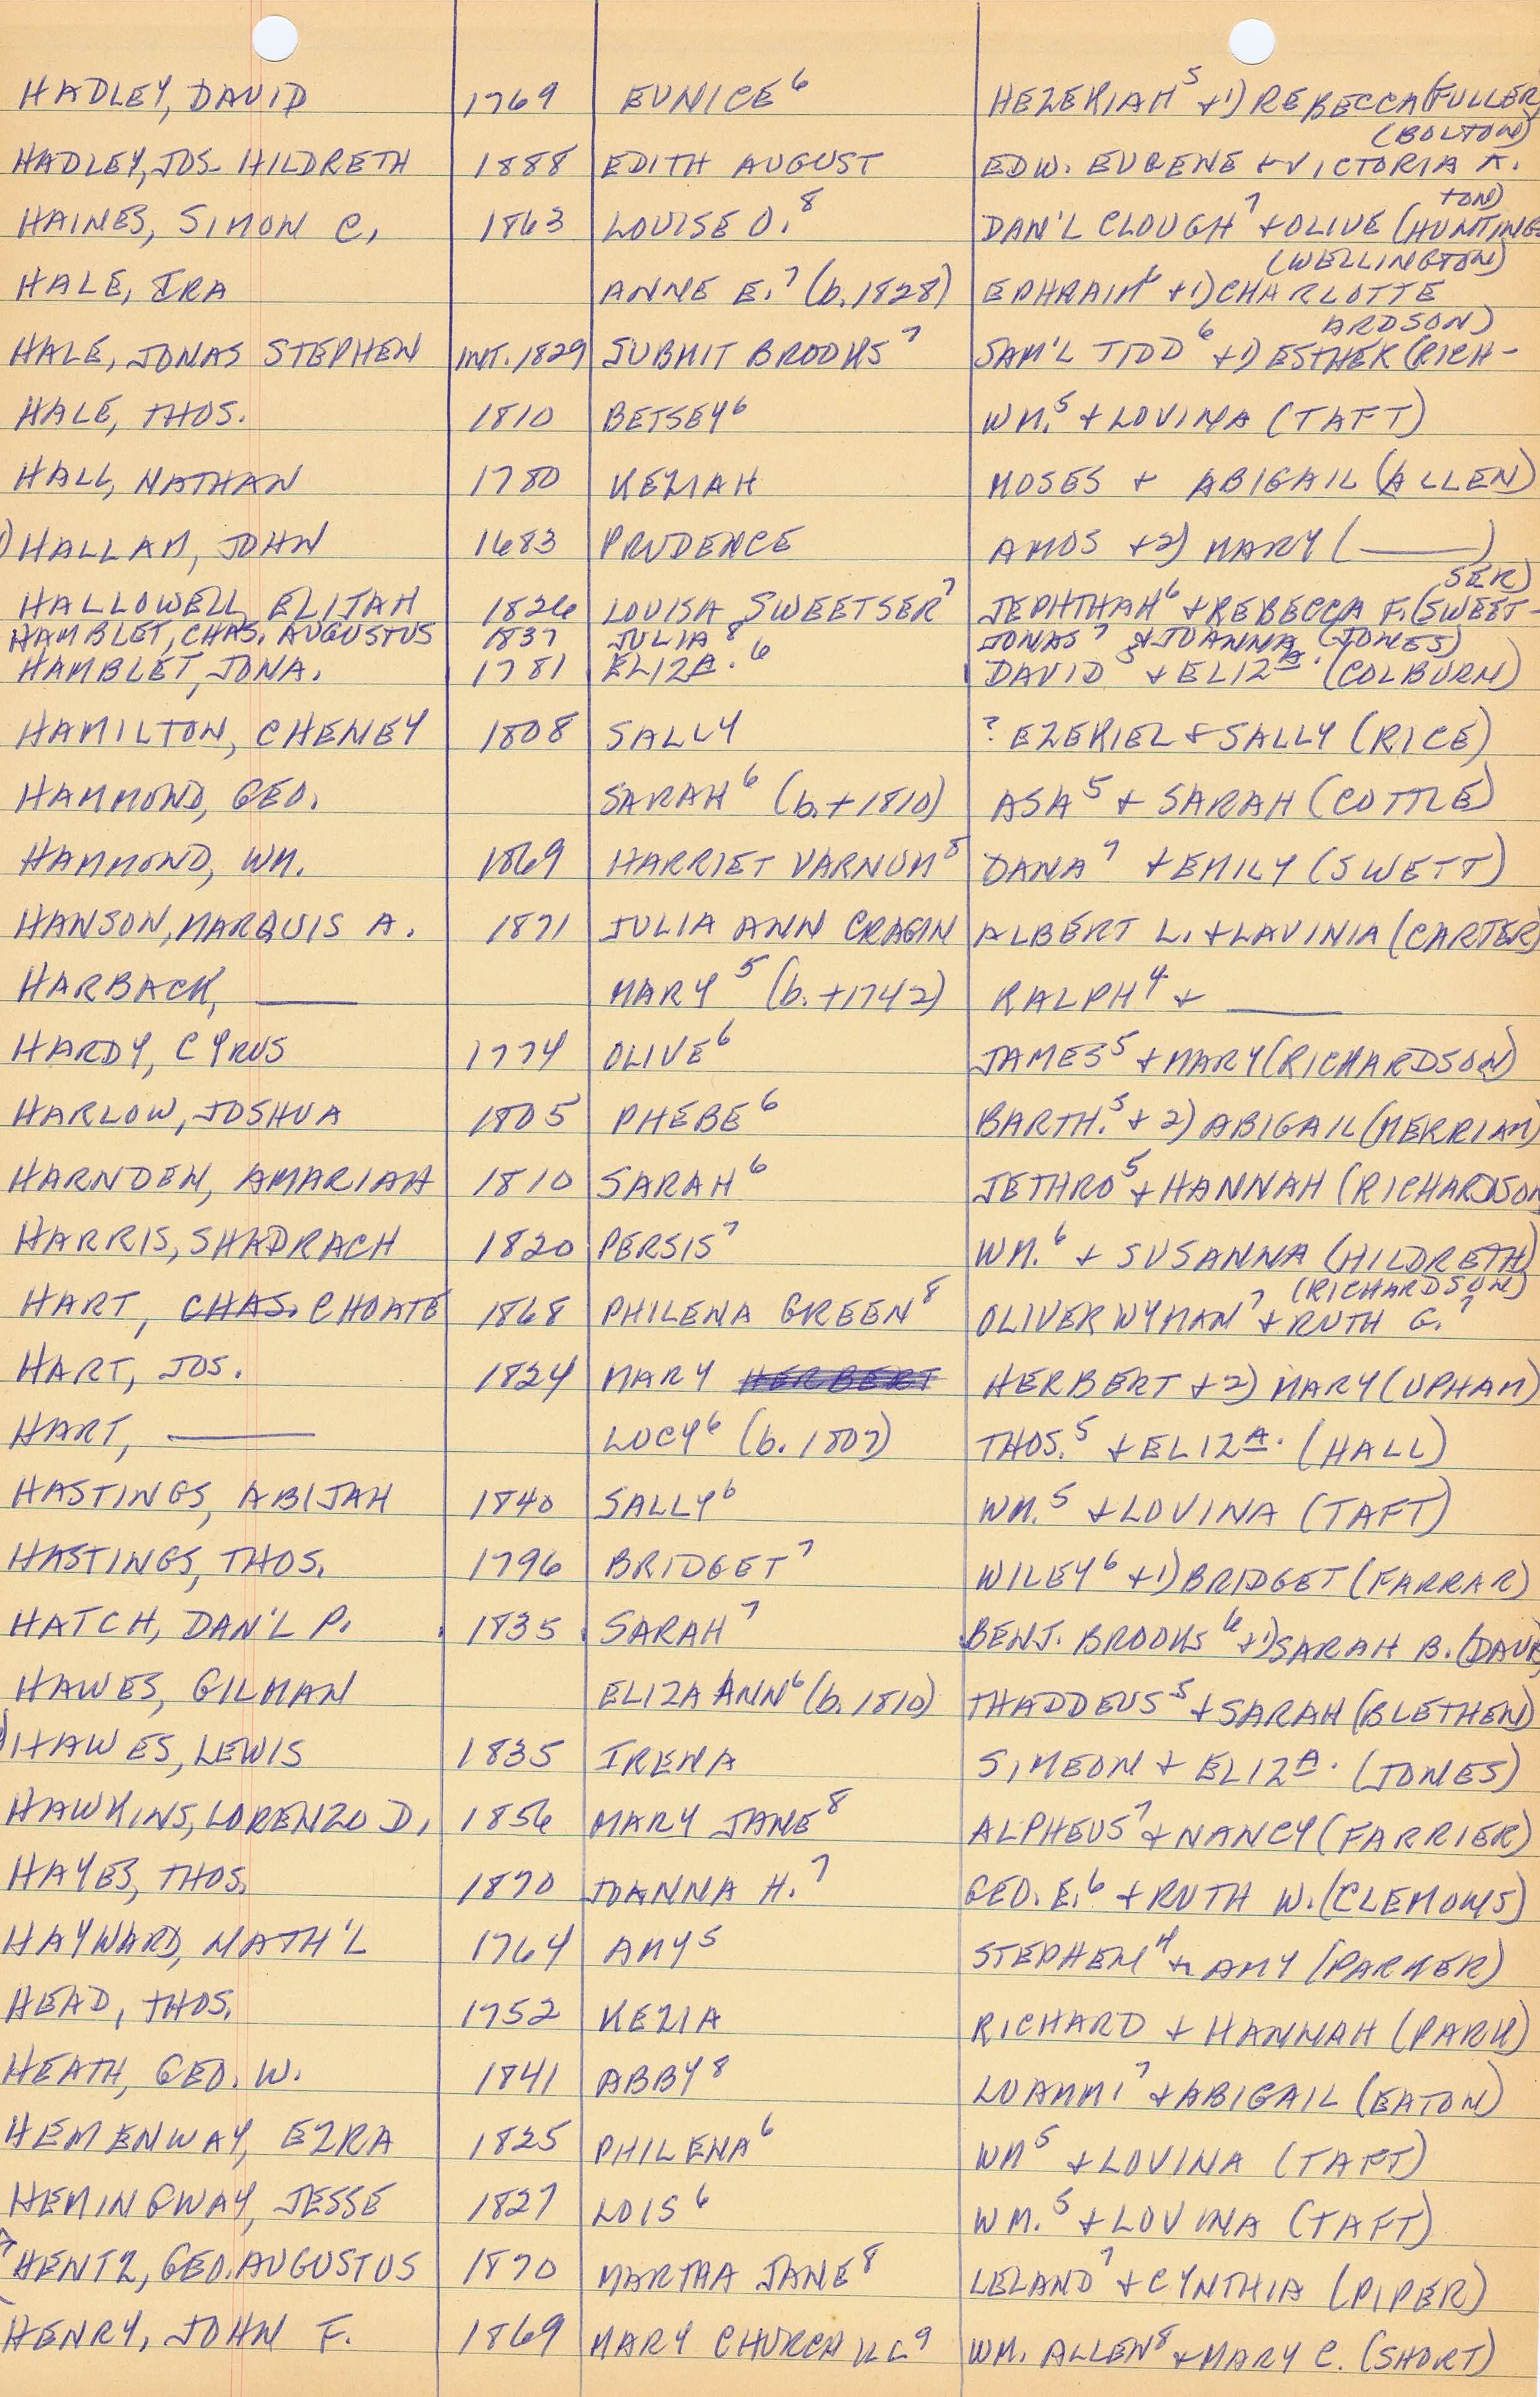 HADLEY, DAVID 1769 EUNICE⁶ HEZEKIAH⁵ + 1) REBECCA (FULLER)
(BOLTON)
HADLEY, JOS. HILDRETH 1888 EDITH AUGUST EDW. EUGENE + VICTORIA A.
TON)
HAINES, SIMON C. 1863 LOUISE O.⁸ DAN'L CLOUGH⁷ + OLIVE (HUNTING-
(WELLINGTON)
HALE, IRA ANNE E.⁷ (b. 1828) EPHRAIM⁶ + 1) CHARLOTTE
ARDSON)
HALE, JONAS STEPHEN INT. 1829 SUBMIT BROOKS⁷ SAM'L TIDD⁶ + 1) ESTHER (RICH-
HALE, THOS. 1810 BETSEY⁶ WM.⁵ + LOVINA (TAFT)
HALL, NATHAN 1780 KEZIAH MOSES + ABIGAIL (ALLEN)
) HALLAM, JOHN 1683 PRUDENCE AMOS + 2) MARY ( ——— )
SER)
HALLOWELL, ELIJAH 1826 LOUISA SWEETSER⁷ JEPHTHAH⁶ + REBECCA F. (SWEET-
HAMBLET, CHAS. AUGUSTUS 1837 JULIA⁸ JONAS⁷ & JOANNA (JONES)
HAMBLET, JONA. 1781 ELIZA.⁶ DAVID⁵ + ELIZA. (COLBURN)
HAMILTON, CHENEY 1808 SALLY ? EZEKIEL + SALLY (RICE)
HAMMOND, GEO. SARAH⁶ (b. + 1810) ASA⁵ + SARAH (COTTLE)
HAMMOND, WM. 1869 HARRIET VARNUM⁸ DANA⁷ + EMILY (SWETT)
HANSON, MARQUIS A. 1871 JULIA ANN CRAGIN ALBERT L. + LAVINIA (CARTER)
HARBACK, ——— MARY⁵ (b. + 1742) RALPH⁴ + ———
HARDY, CYRUS 1774 OLIVE⁶ JAMES⁵ + MARY (RICHARDSON)
HARLOW, JOSHUA 1805 PHEBE⁶ BARTH.⁵ + 2) ABIGAIL (MERRIAM)
HARNDEN, AMARIAH 1810 SARAH⁶ JETHRO⁵ + HANNAH (RICHARDSON
HARRIS, SHADRACH 1820 PERSIS⁷ WM.⁶ + SUSANNA (HILDRETH)
(RICHARDSON)
HART, CHAS. CHOATE 1868 PHILENA GREEN⁸ OLIVER WYMAN⁷ + RUTH G.⁷
HART, JOS. 1824 MARY HERBERT HERBERT + 2) MARY (UPHAM)
HART, ——— LUCY⁶ (b. 1807) THOS.⁵ + ELIZA. (HALL)
HASTINGS, ABIJAH 1840 SALLY⁶ WM.⁵ + LOVINA (TAFT)
HASTINGS, THOS. 1796 BRIDGET⁷ WILEY⁶ + 1) BRIDGET (FARRAR)
HATCH, DAN'L P. 1835 SARAH⁷ BENJ. BROOKS⁶ + 1) SARAH B.
HAWES, GILMAN ELIZA ANN⁶ (b. 1810) THADDEUS⁵ + SARAH (BLETHEN)
) HAWES, LEWIS 1835 IRENA SIMEON + ELIZA. (JONES)
HAWKINS, LORENZO D. 1856 MARY JANE⁸ ALPHEUS⁷ + NANCY (FARRIER)
HAYES, THOS. 1870 JOANNA H.⁷ GEO. E.⁶ + RUTH W. (CLEMONS)
HAYWARD, NATH'L 1764 AMY⁵ STEPHEN⁴ + AMY (PARKER)
HEAD, THOS. 1752 KEZIA RICHARD + HANNAH (PARK)
HEATH, GEO. W. 1841 ABBY⁸ LUAMMI⁷ + ABIGAIL (EATON)
HEMENWAY, EZRA 1825 PHILENA⁶ WM⁵ + LOVINA (TAFT)
HEMINGWAY, JESSE 1827 LOIS⁶ WM.⁵ + LOVINA (TAFT)
HENTZ, GEO. AUGUSTUS 1870 MARTHA JANE⁸ LELAND⁷ + CYNTHIA (PIPER)
HENRY, JOHN F. 1869 MARY CHURCHILL⁹ WM. ALLEN⁸ + MARY C. (SHORT)